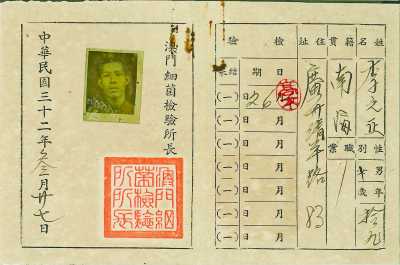 姓名 李之
性別 男 年歲 拾九
籍貫 南海
職業
住址 廣州清平路 83
檢驗
日期
結果
月 26日 (一)
月 日 (一)
月 日 (一)
月 日 (一)
月 日 (一)
月 日 (一)
澳門細菌檢驗所長
澳門細
菌檢驗
所所長
中華民國三十二年三月廿七日